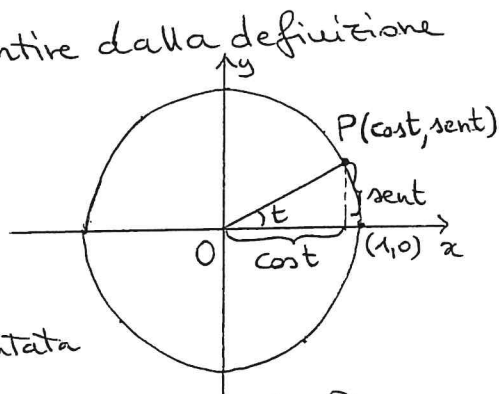 ntire dalla definizione
y
P(cost, sent)
sent
t
O
cost
(1,0)
x
ntata